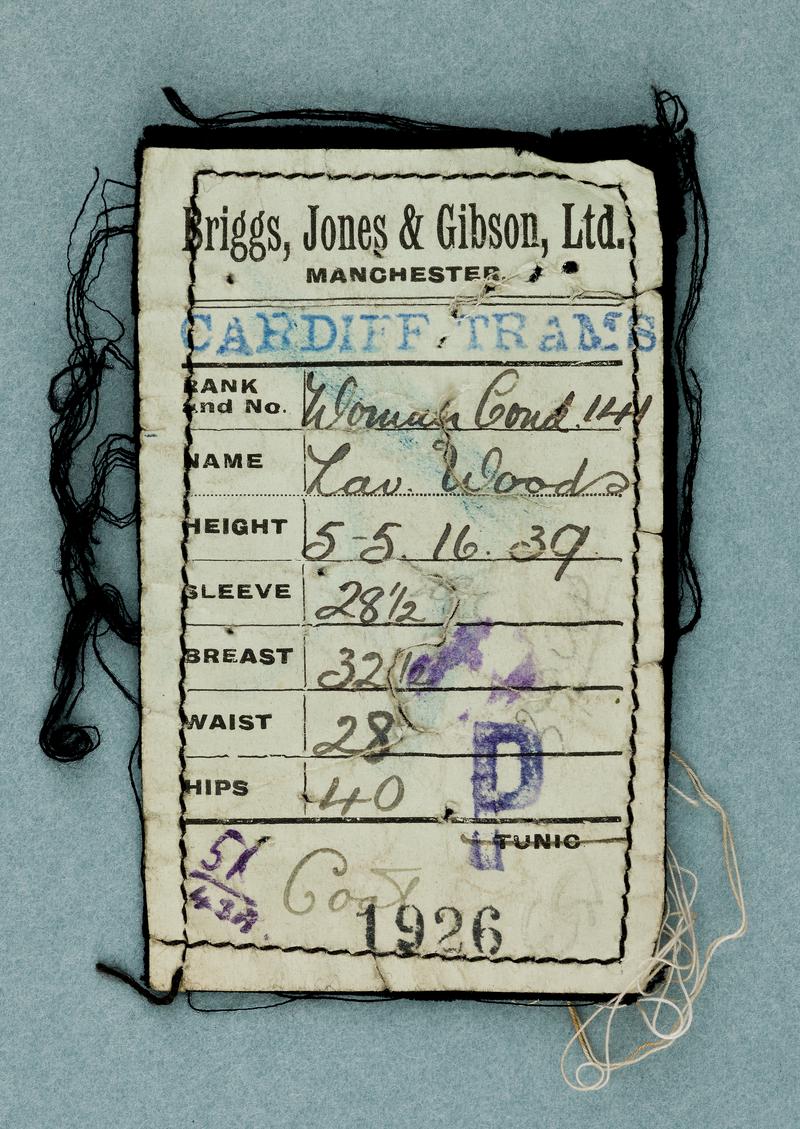 Briggs, Jones & Gibson, Ltd.
MANCHESTER.
CARDIFF TRAMS
RANK and No. Woman Cond. 141
NAME Lav. Woods
HEIGHT 5-5. 16. 39.
SLEEVE 28½
BREAST 32½
WAIST 28
HIPS 40
P
TUNIC
Coat
1926